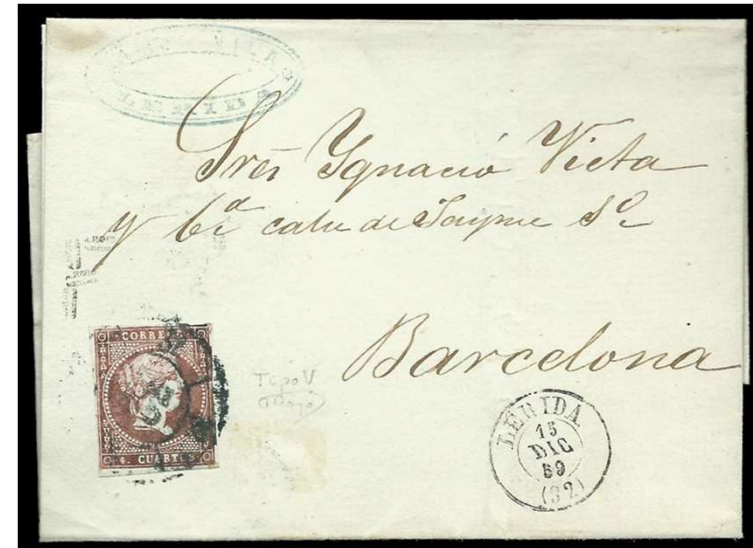 LERIDA
Sres Ygnació Vieta
y Cía calle de Jayme 1º
Barcelona
CORREOS
4 CUARTOS
Tipo V
LERIDA
15
DIC
59
(32)